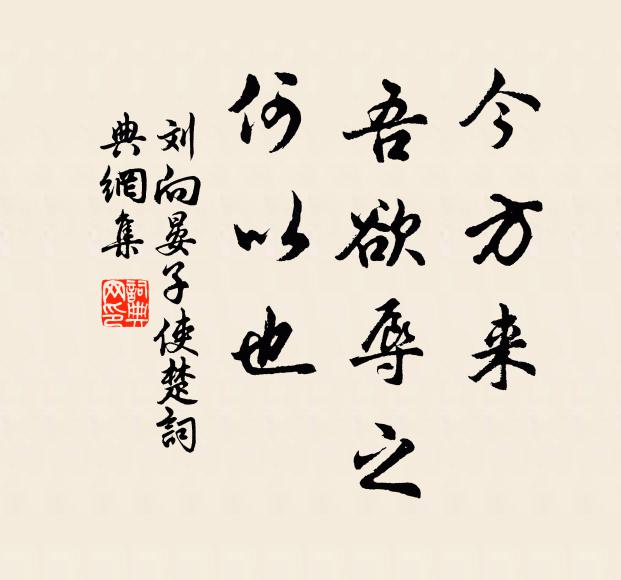 今方来
吾欲辱之
何以也
刘向晏子使楚詞
典網集
詞典
网印